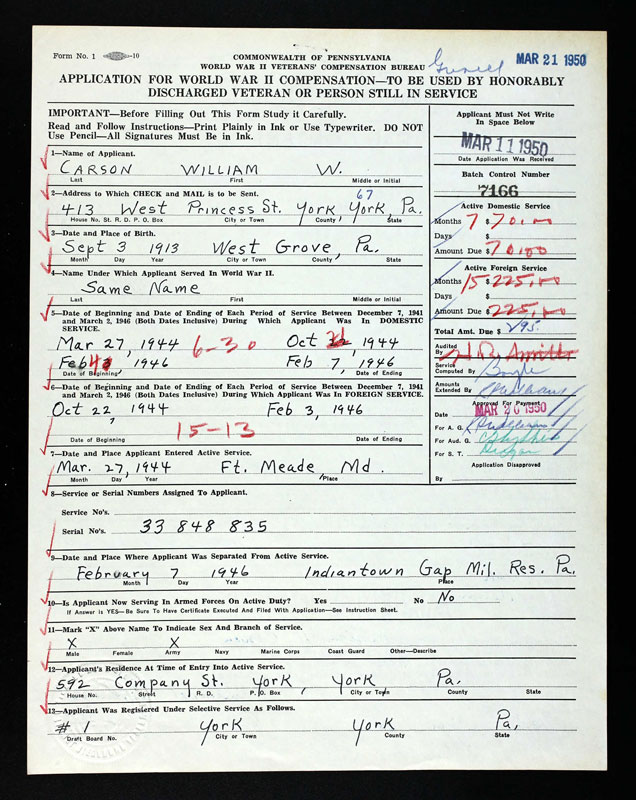 Form No. 1 -10
COMMONWEALTH OF PENNSYLVANIA
MAR 21 1950
WORLD WAR II VETERANS' COMPENSATION BUREAU
APPLICATION FOR WORLD WAR II COMPENSATION—TO BE USED BY HONORABLY
DISCHARGED VETERAN OR PERSON STILL IN SERVICE
IMPORTANT—Before Filling Out This Form Study it Carefully.
Read and Follow Instructions—Print Plainly in Ink or Use Typewriter. DO NOT
Use Pencil—All Signatures Must Be in Ink.
Applicant Must Not Write
In Space Below
MAR 11 1950
Date Application was Received
Batch Control Number
7166
1—Name of Applicant.
CARSON WILLIAM W.
Last First Middle or Initial
2—Address to Which CHECK and MAIL is to be Sent.
67
413 West Princess St. York York, Pa.
House No. St. R. D. P. O. Box City or Town County State
3—Date and Place of Birth.
Sept 3 1913 West Grove, Pa.
Month Day Year City or Town County State
4—Name Under Which Applicant Served In World War II.
Same Name
Last First Middle or Initial
5—Date of Beginning and Date of Ending of Each Period of Service Between December 7, 1941
and March 2, 1946 (Both Dates Inclusive) During Which Applicant Was In DOMESTIC
SERVICE.
Mar 27, 1944 6-30 Oct 21, 1944
Feb 4, 1946 Feb 7, 1946
Date of Beginning Date of Ending
6—Date of Beginning and Date of Ending of Each Period of Service Between December 7, 1941
and March 2, 1946 (Both Dates Inclusive) During Which Applicant Was In FOREIGN SERVICE.
Oct 22, 1944 Feb 3, 1946
15-13
Date of Beginning Date of Ending
7—Date and Place Applicant Entered Active Service.
Mar. 27, 1944 Ft. Meade, Md.
Month Day Year Place
Active Domestic Service
Months 7 $ 70.00
Days $
Amount Due $ 70.00
Active Foreign Service
Months 15 $ 225.00
Days $
Amount Due $ 225.00
Total Amt. Due $ 295
Audited
By H R Smith
Service
Computed By
Amounts
Extended By
Approved For Payment
Date MAR 20 1950
For A. G.
For Aud. G.
For S. T.
Application Disapproved
By
8—Service or Serial Numbers Assigned To Applicant.
Service No's.
Serial No's. 33 848 835
9—Date and Place Where Applicant Was Separated From Active Service.
February 7 1946 Indiantown Gap Mil. Res. Pa.
Month Day Year Place
10—Is Applicant Now Serving In Armed Forces On Active Duty? Yes No No
If Answer is YES—Be Sure To Have Certificate Executed And Filed With Application—See Instruction Sheet.
11—Mark "X" Above Name To Indicate Sex And Branch of Service.
X X
Male Female Army Navy Marine Corps Coast Guard Other—Describe
12—Applicant's Residence At Time of Entry Into Active Service.
592 Company St. York, York Pa.
House No. Street R. D. P. O. Box City or Town County State
13—Applicant Was Registered Under Selective Service As Follows.
# 1 York York Pa,
Draft Board No. City or Town County State